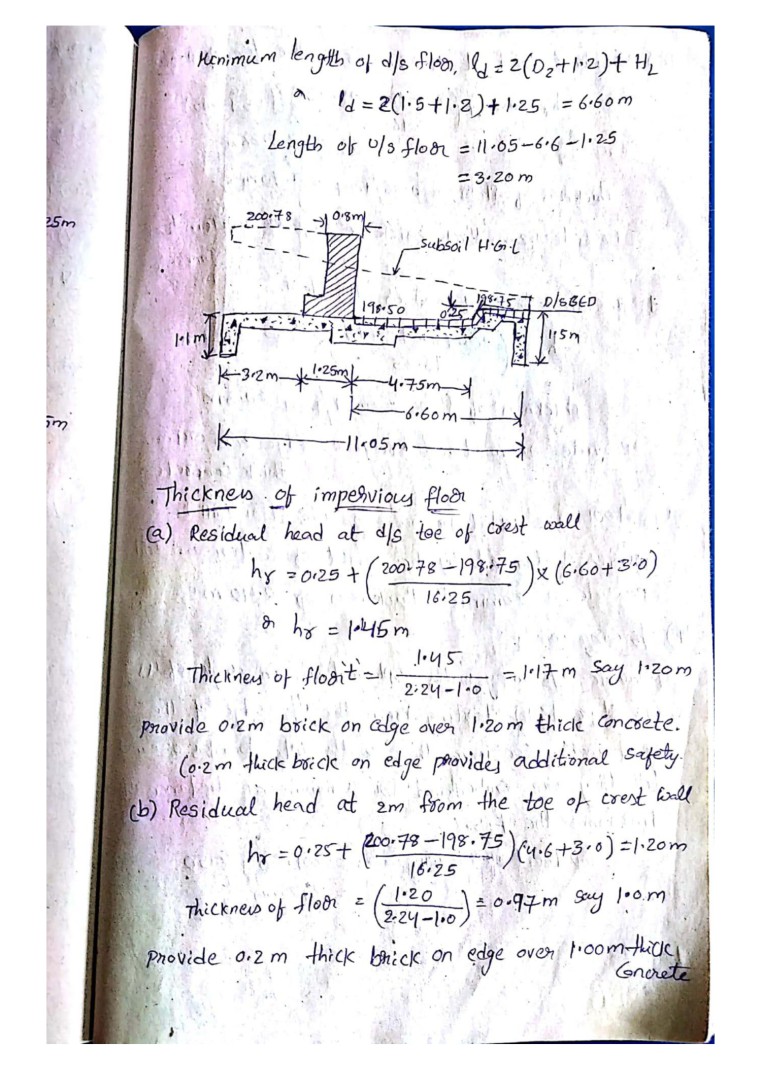 Minimum length of d/s floor, ld = 2(D2+1.2)+ HL
or ld = 2(1.5+1.2)+1.25 = 6.60m
Length of U/s floor = 11.05-6.6-1.25
= 3.20 m
25m
200.78 0.8m
Subsoil H.G.L
198.50 0.25 198.75 D/S BED
1.1m 1.5m
3.2m 1.25m 4.75m
6.60m
5m
11.05m
Thickness of impervious floor
(a) Residual head at d/s toe of crest wall
hr = 0.25 + (200.78-198.75 / 16.25) x (6.60+3.0)
or hr = 1.45m
Thickness of floor t = 1.45 / 2.24-1.0 = 1.17m Say 1.20m
Provide 0.2m brick on edge over 1.20m thick Concrete.
(0.2m thick brick on edge provides additional safety.
(b) Residual head at 2m from the toe of crest wall
hr = 0.25+ (200.78-198.75 / 16.25)(4.6+3.0) = 1.20m
Thickness of floor = (1.20 / 2.24-1.0) = 0.97m Say 1.0.m
Provide 0.2m thick brick on edge over 1.00m thick
Concrete